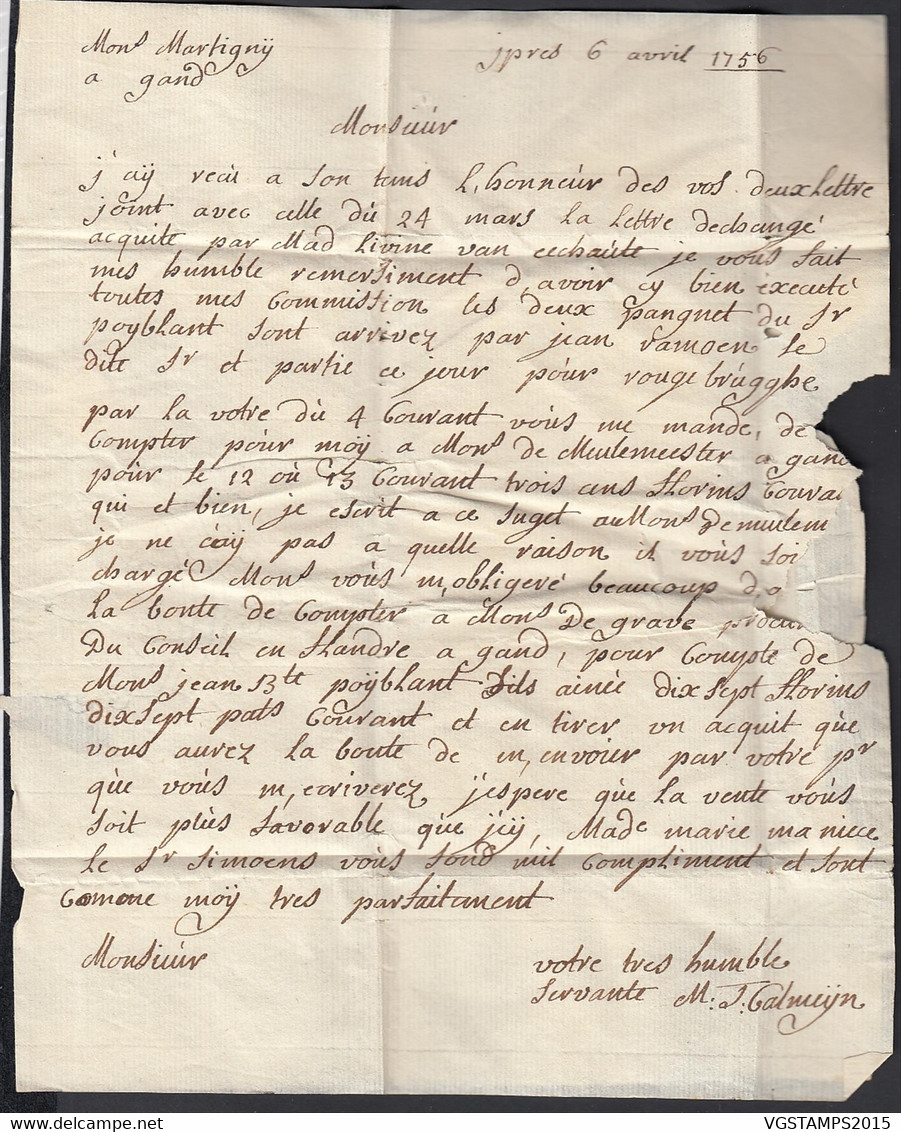 Mons Martignÿ
a gand
jpres 6 avril 1756
Monsieúr
j'aÿ recú a son tams L,honneúr des vos deux Lettre
joint avec celle dú 24 mars La Lettre dechangé
acquite par Mad Livine van eechaúte je voús fait
mes humble remersiment d,avoir cy bien éxecuté
toutes mes Commission les deux paequet du Sr
poÿblhant sont arrivez par jean ramoen le
dite Sr et partie ce jour póur rougebrúgghe
par la votre dú 4 Courant voús me mande, de
Compter póur moÿ a Mons de Meulemeester a gand
póur le 12 oú 13 Courant trois cens florins Coura
qui et bien, je escrit a ce suget au Mons Demeulem
je ne çaÿ pas a quelle raison il voús soi
chargé Mons voús m,obligeré beaucoup d,a
La bonte de Compter a Mons De grave procur
Du Conseil en flandre a gand, pour Compte de
Mons jean Bte poÿblhant fils ainée dix sept florins
dix sept pats Courant et en tirer un acquit qúe
vous aurez la bonte de m,envoier par votre pr
qúe voús m,ecriverez j'espere qúe la vente voús
soit plús favorable que j'cÿ, Made marie ma niece
le Sr Simoens voús fond mil Compliment et sont
Comme moÿ tres parfaitement
Monsieúr
votre tres humble
servante M: J: Calmeÿn
VGSTAMPS2015